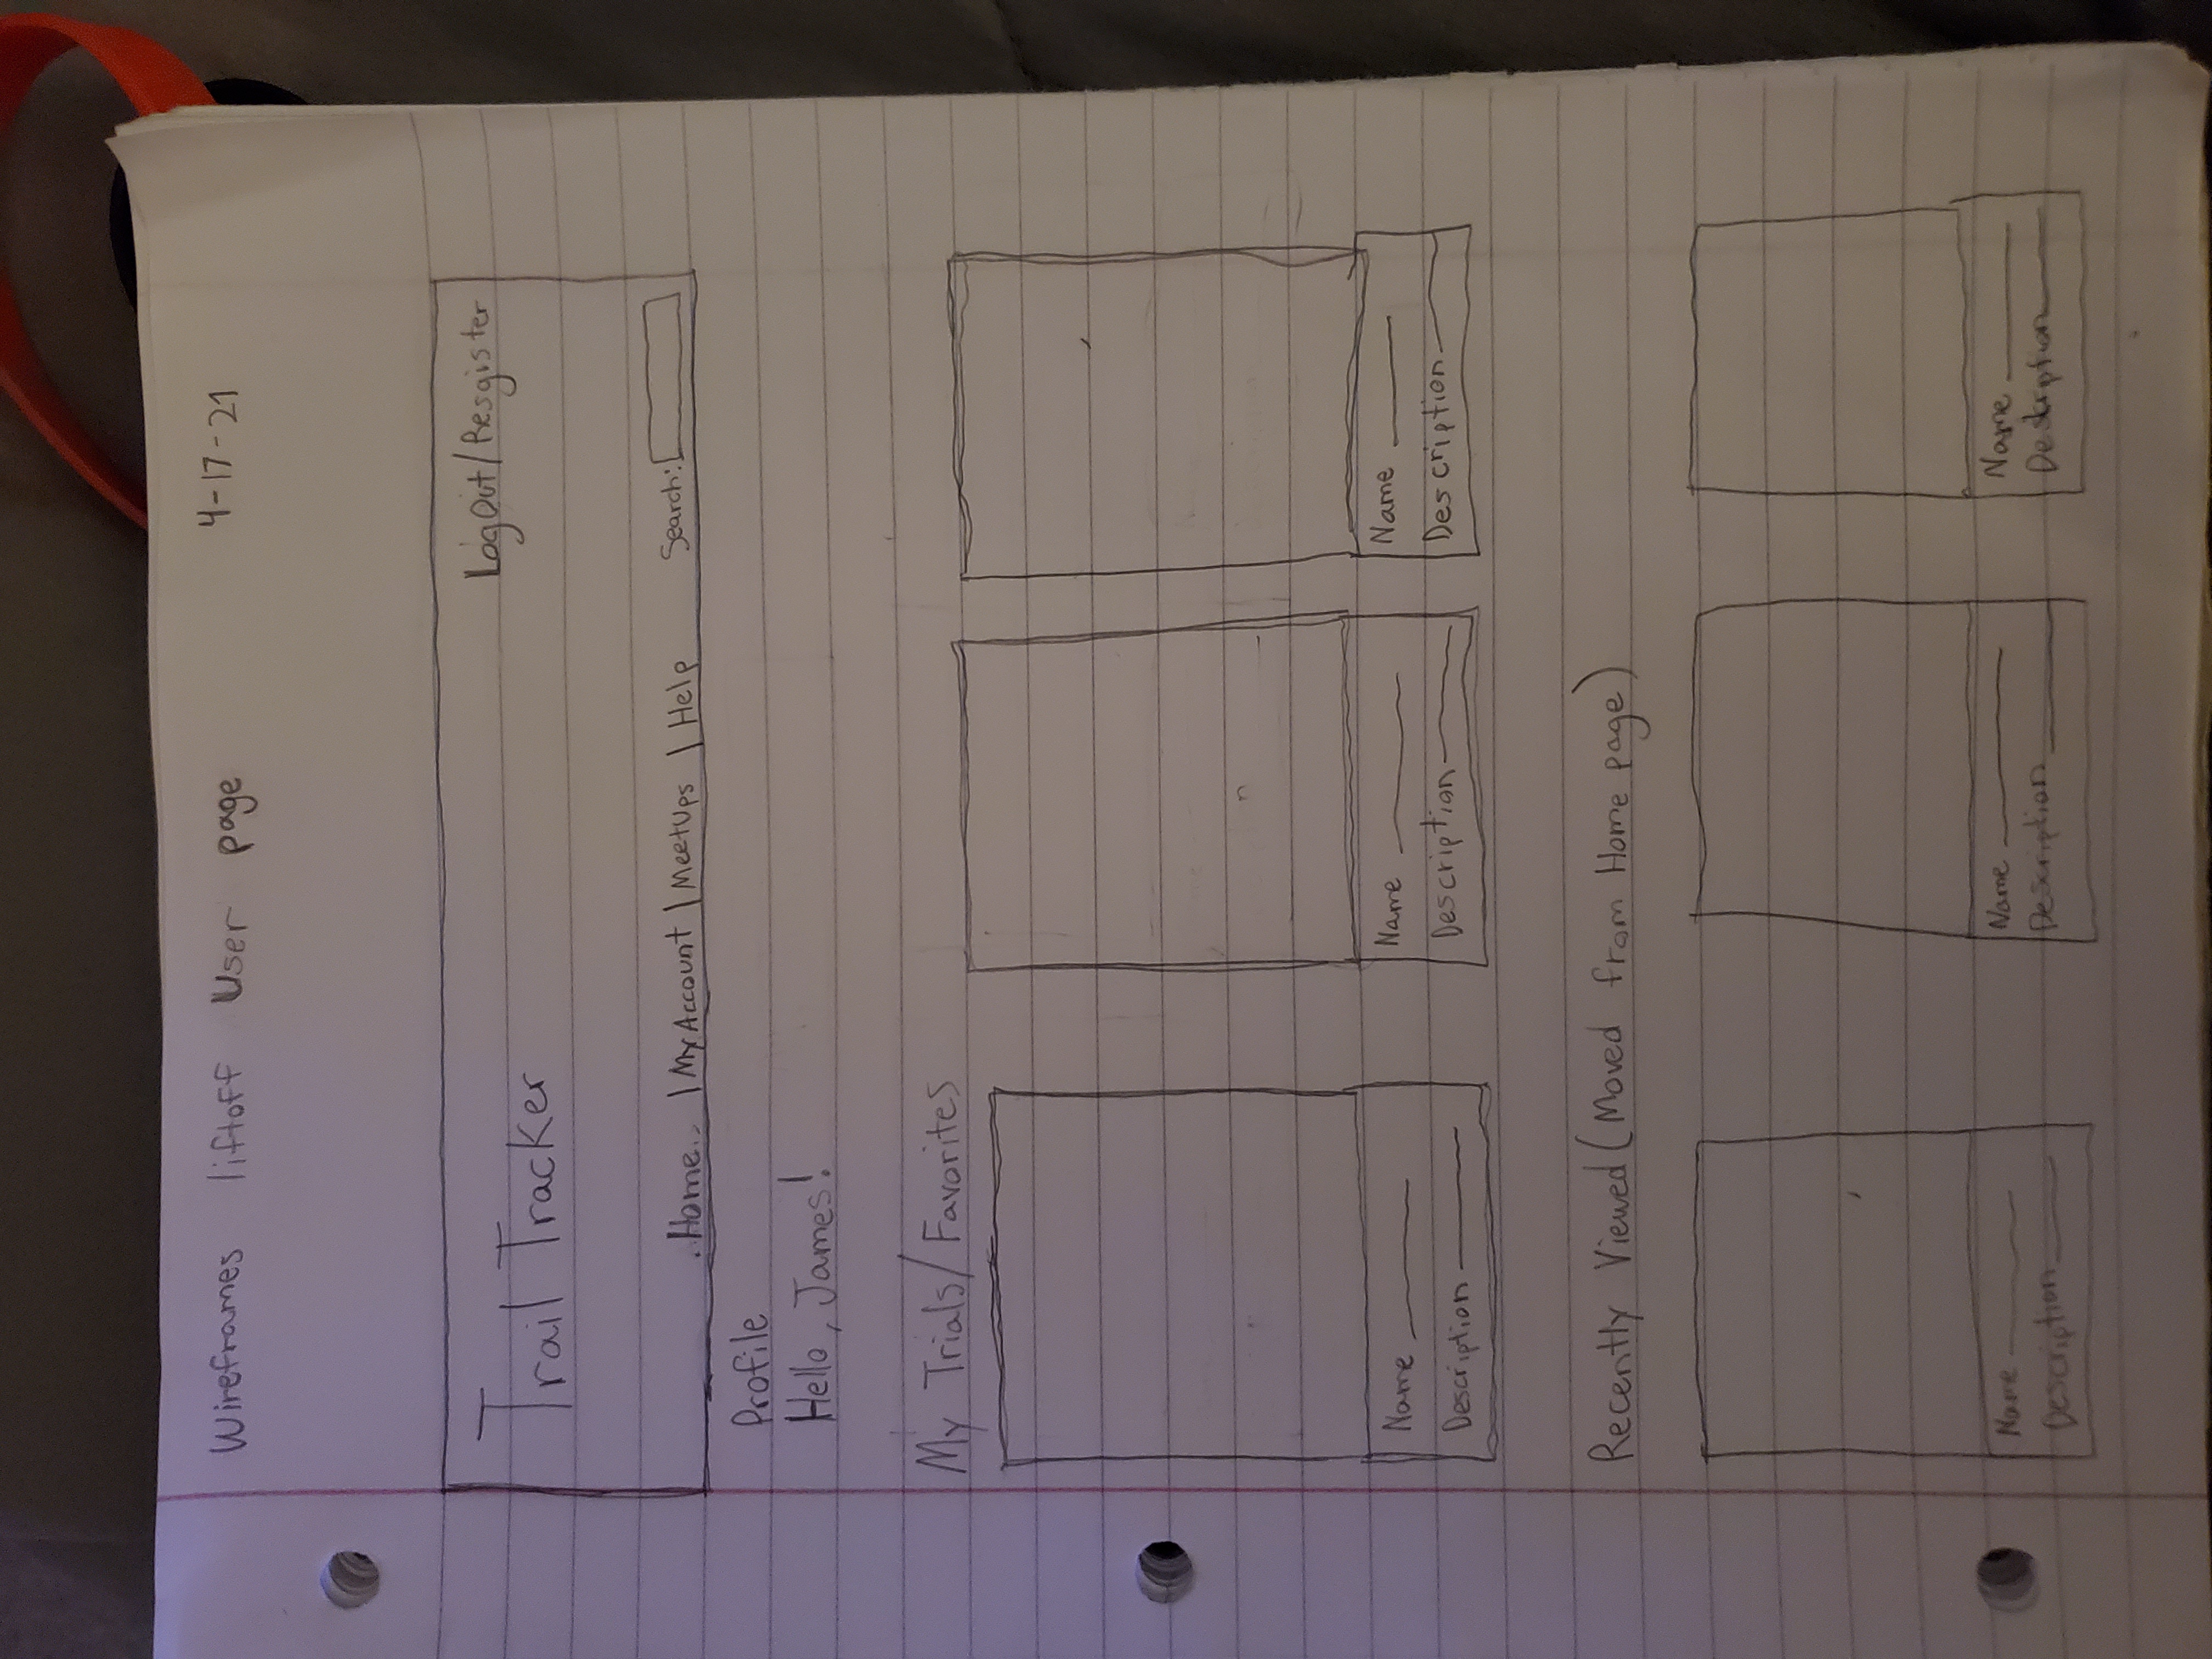 Wireframes liftoff User page 4-17-21
Trail Tracker LogOut/Resgister
Home | My Account | MeetUps | Help Search:
Profile
Hello, James!
My Trials/Favorites
Name Name Name
Description Description Description
Recently Viewed (Moved from Home page)
Name Name Name
Description Description Description